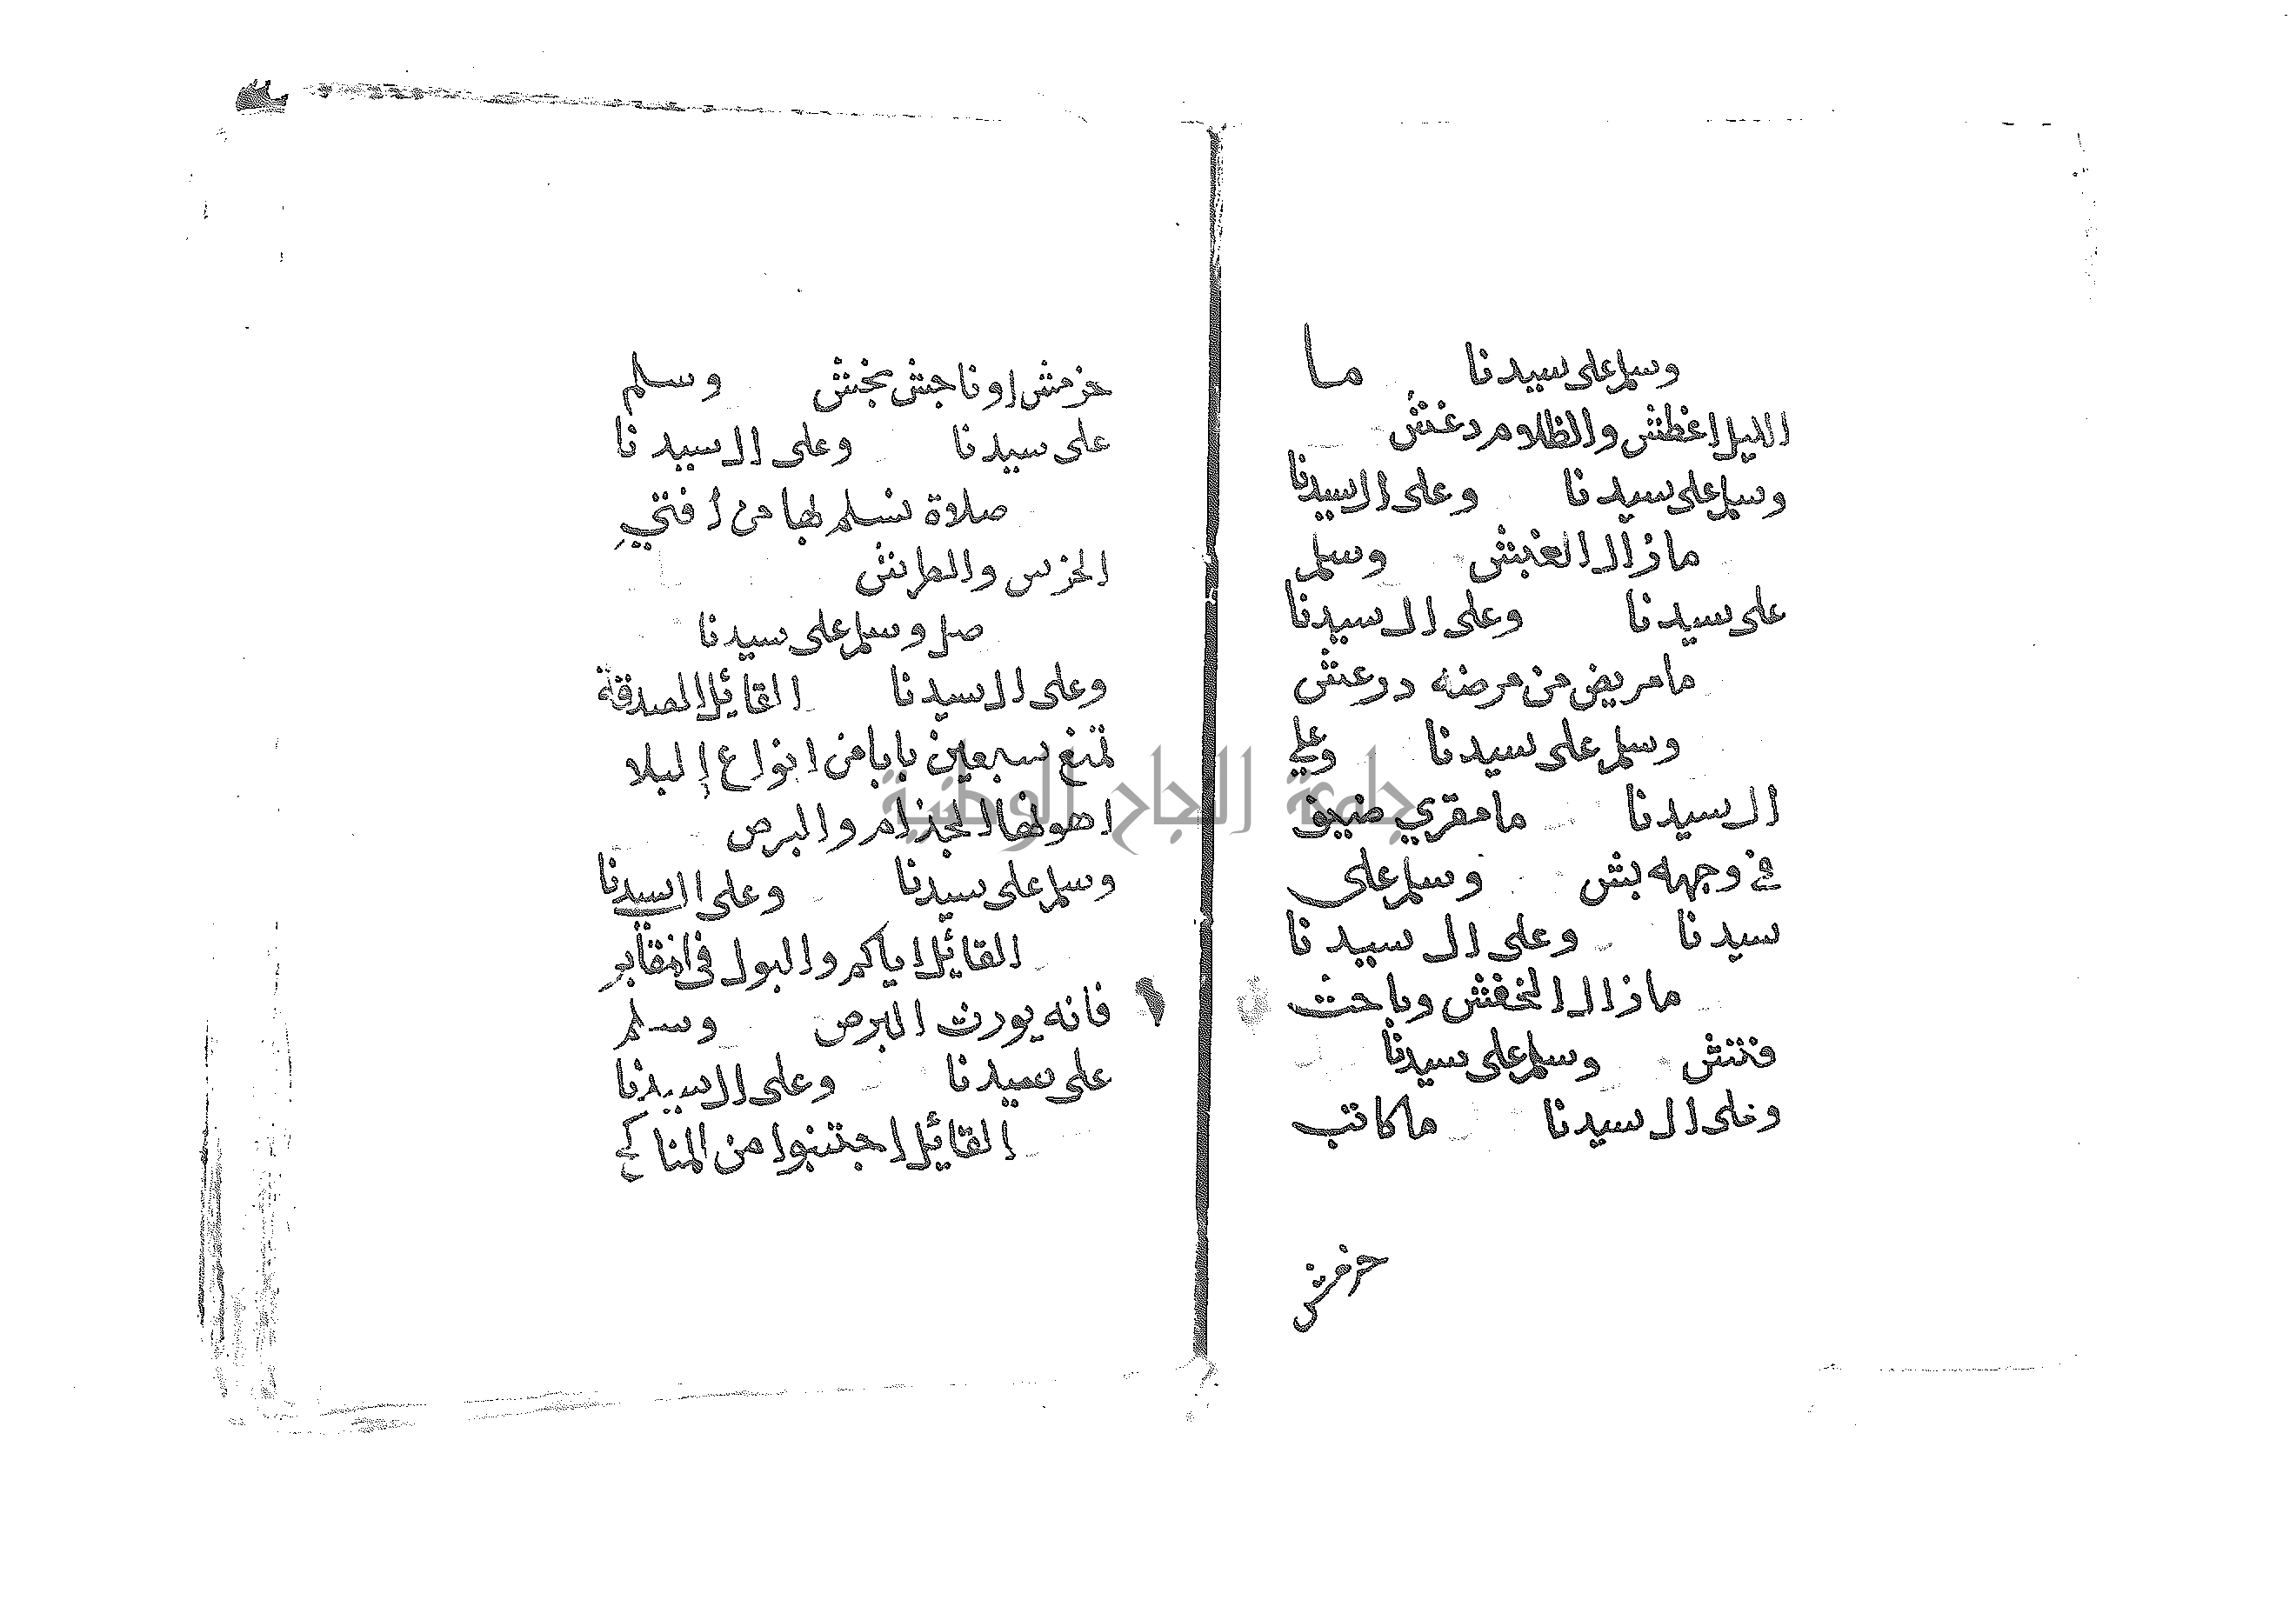 وسلم على سيدنا ما
الليل اغطش والظلام دغش
وسلم على سيدنا وعلى ال سيدنا
ما زال الغبش وسلم
على سيدنا وعلى ال سيدنا
ما مريض من مرضه درعش
وسلم على سيدنا وعلي
ال سيدنا ما مقري ضيف
في وجهه بش وسلم على
سيدنا وعلى ال سيدنا
ما زال الخفش وباحث
فتش وسلم على سيدنا
وعلى ال سيدنا ما كاتب
خرمش
خرمش او ناجش بخش وسلم
على سيدنا وعلى ال سيدنا
صلاة نسلم بها من أفتي
الخرس والطرش
صل وسلم على سيدنا
وعلى ال سيدنا القائل الصدقة
تمنع سبعين بابا من انواع البلا
اهونها الجذام والبرص
وسلم على سيدنا وعلى ال سيدنا
القائل اياكم والبول في المقابر
فانه يورث البرص وسلم
على سيدنا وعلى ال سيدنا
القائل اجتنبوا من المناكح
جامعة النجاح الوطنية